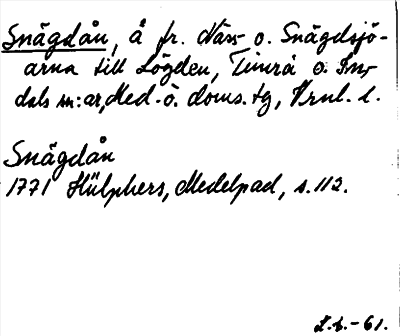 Snägdån, å fr. Näss- o. Snägdsjö-
arna till Lögden, Timrå o. Ins-
dals sn:ar, Med. ö. doms. tg, Vrnl. l.
Snägdån
1771 Hülphers, Medelpad, s. 112.
L.h.-61.